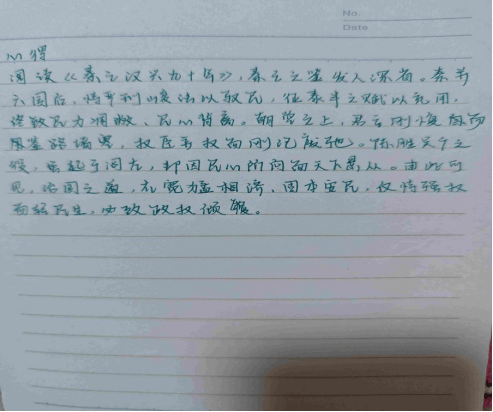 No.
Date
心得
阅读《秦亡汉兴九十年》，秦亡之鉴发人深省。秦并
六国后，恃军刑峻法以驭民，征泰半之赋以充用，
终致民力凋敝、民心背离。朝堂之上，君主刚愎自用
塞路，权臣弄权而刚纪废弛。陈胜吴广之
后，皆起于闾左，却因民心所向而天下景从。由此可
见，治国之道，礼宽力猛相济，固本重民，仅恃强权
而轻民生，必致政权倾覆。